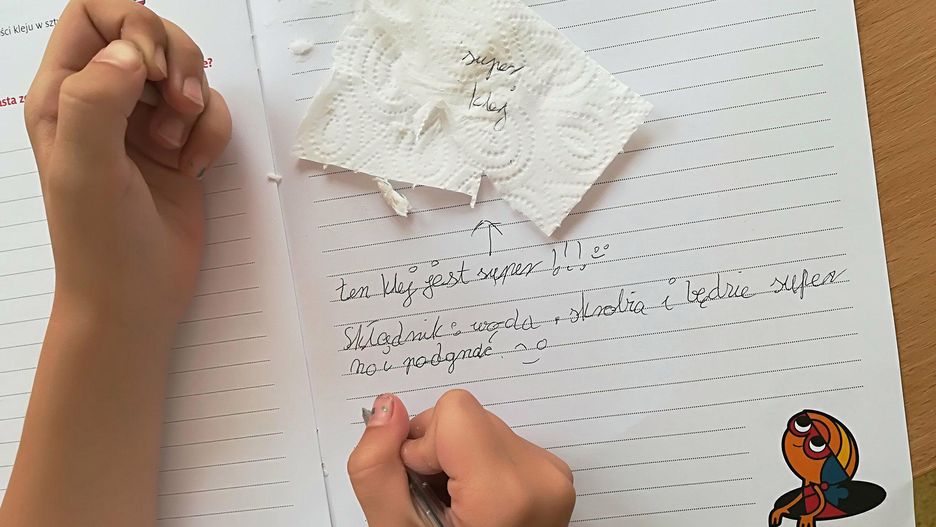 ści kleju w szt
asta z
e?
super
klej
ten klej jest super !!!
składnik: woda, skrobia i będzie super
no i